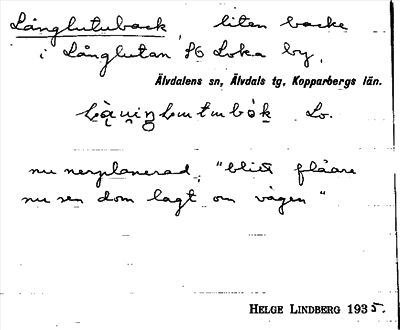 Långlutuback, liten backe
i Långlutan SO Loka by.
Älvdalens sn, Älvdals tg, Kopparbergs län.
Lo.
nu nerplanerad, "blivit flåare
nu sen dom lagt om vägen"
HELGE LINDBERG 1935.